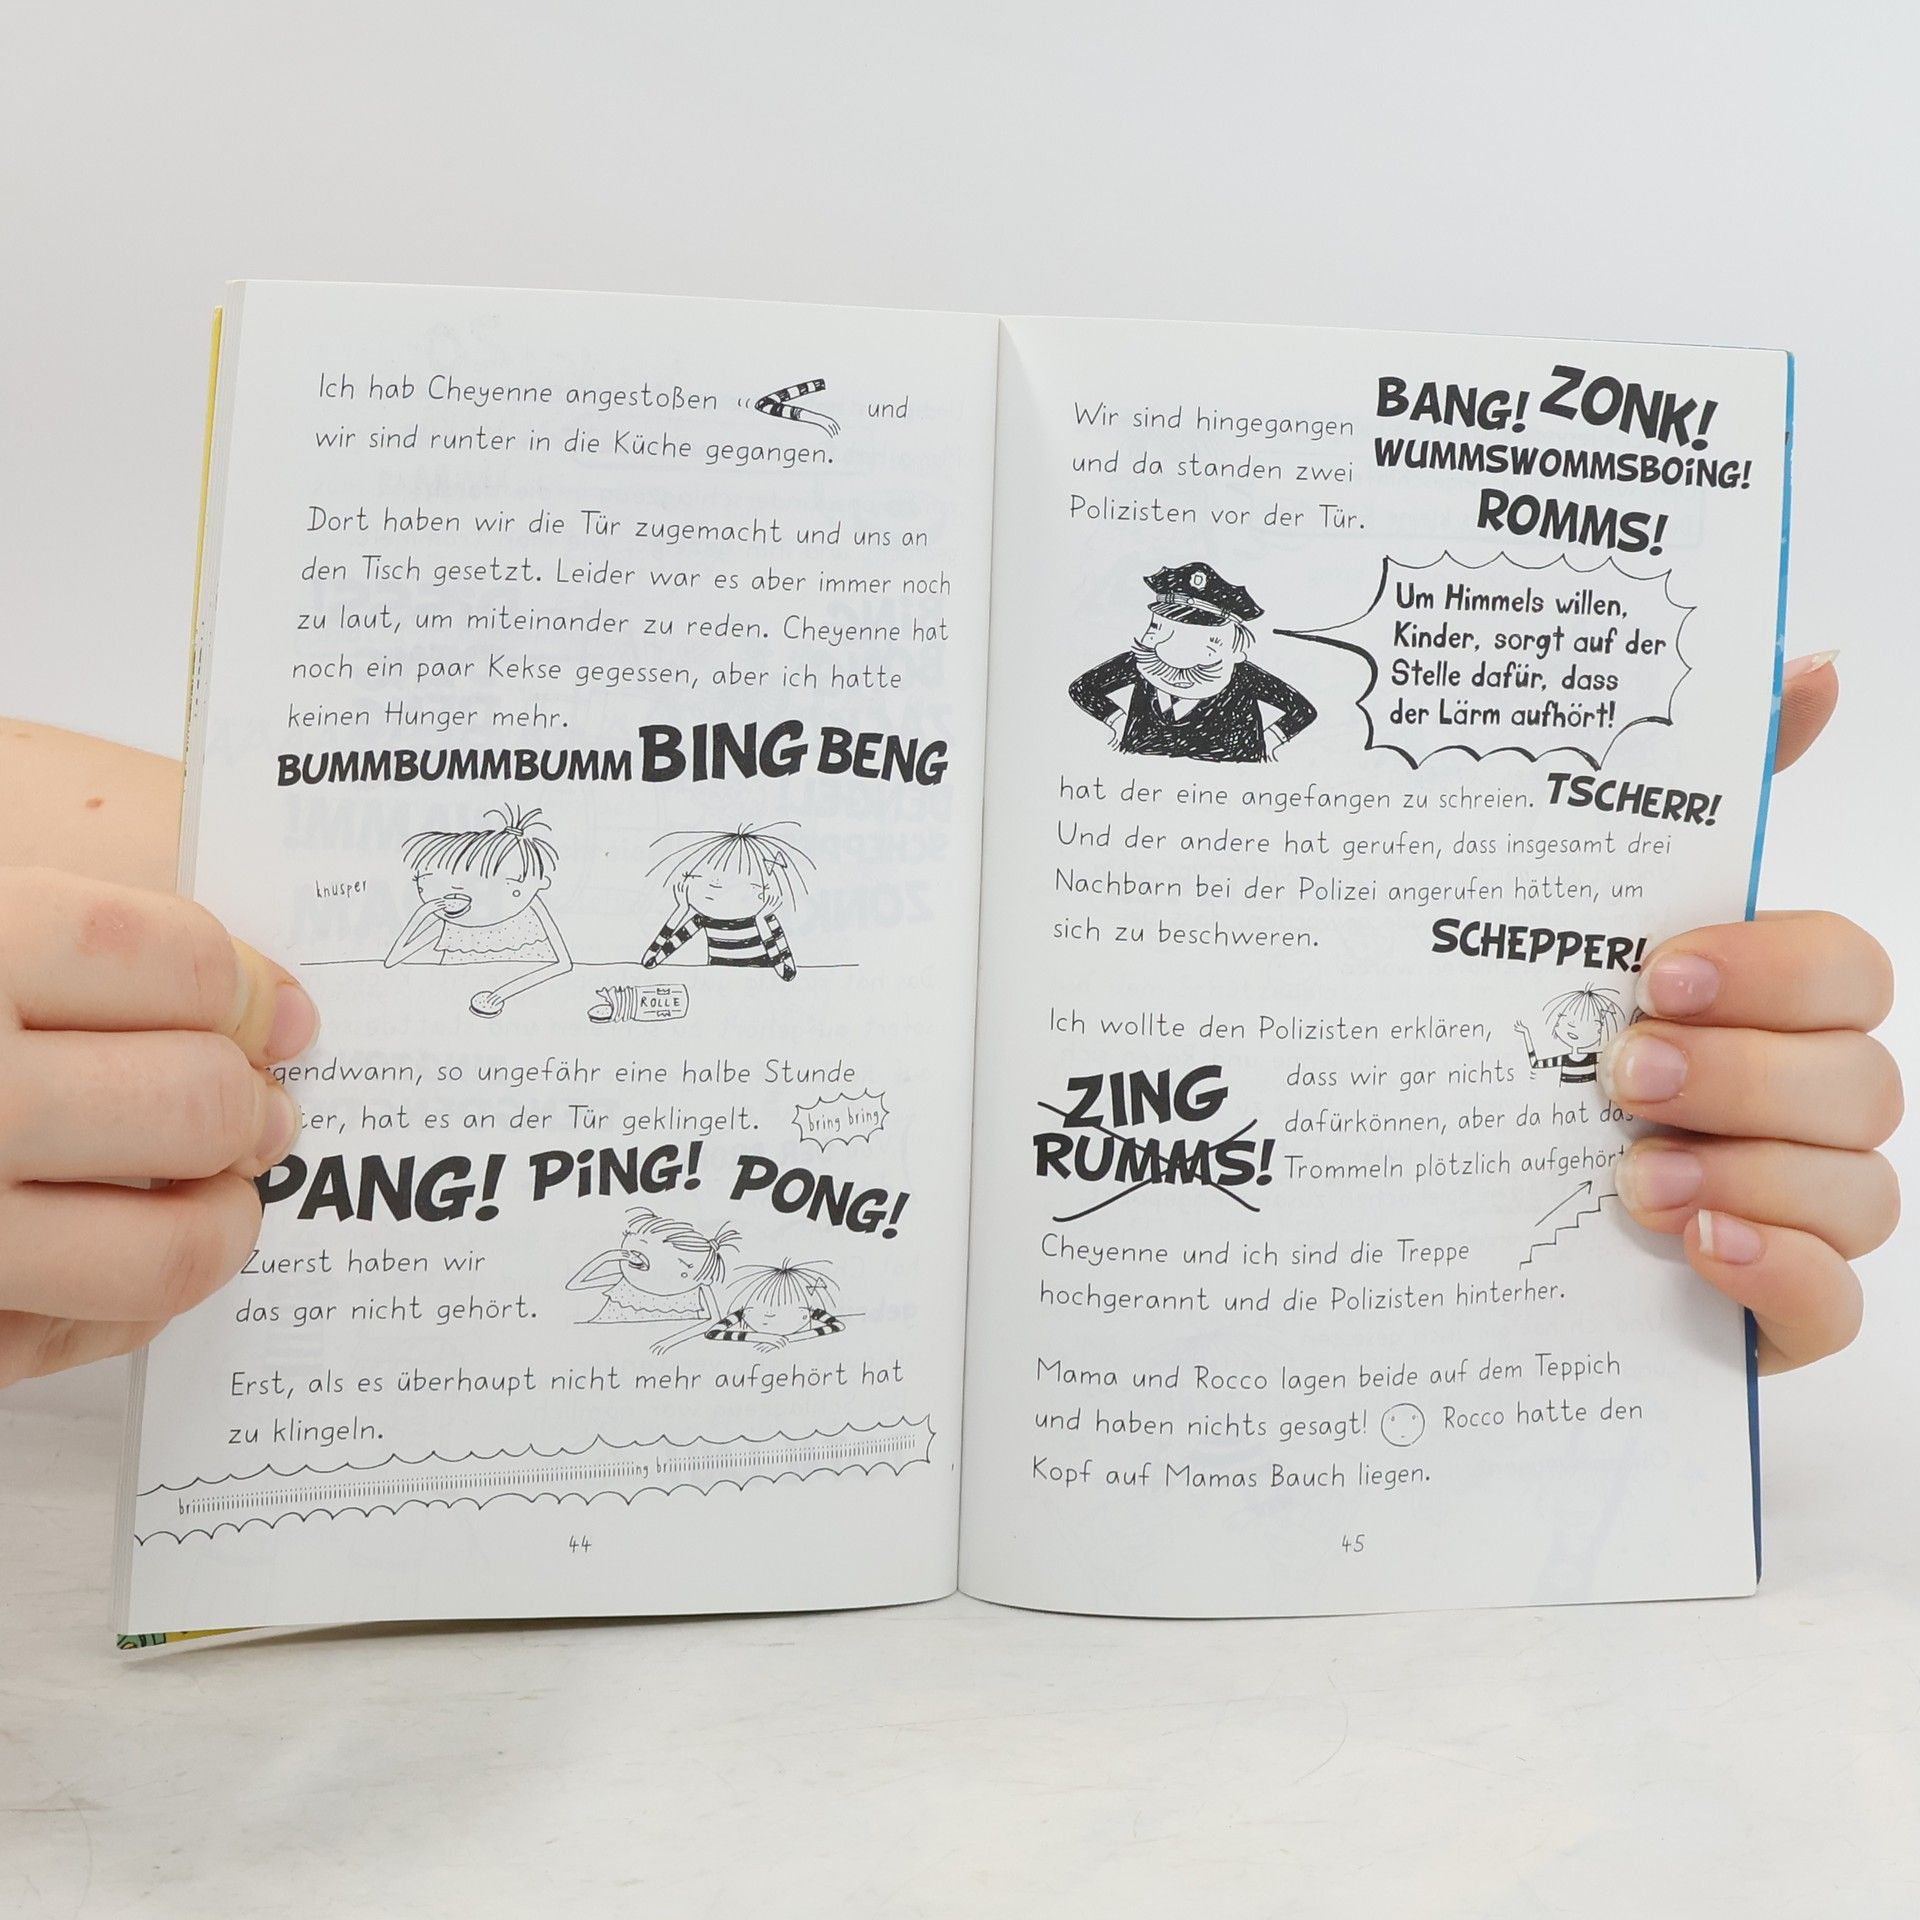 Ich hab Cheyenne angestoßen und
wir sind runter in die Küche gegangen.
Dort haben wir die Tür zugemacht und uns an
den Tisch gesetzt. Leider war es aber immer noch
zu laut, um miteinander zu reden. Cheyenne hat
noch ein paar Kekse gegessen, aber ich hatte
keinen Hunger mehr.
BUMMBUMMBUMM BING BENG
knusper
ROLLE
gendwann, so ungefähr eine halbe Stunde
ter, hat es an der Tür geklingelt.
bring bring
PANG! PiNG! PONG!
Zuerst haben wir
das gar nicht gehört.
Erst, als es überhaupt nicht mehr aufgehört hat
zu klingeln.
44
BANG! ZONK!
Wir sind hingegangen
WUMMSWOMMSBOiNG!
und da standen zwei
Polizisten vor der Tür.
ROMMS!
Um Himmels willen,
Kinder, sorgt auf der
Stelle dafür, dass
der Lärm aufhört!
hat der eine angefangen zu schreien. TSCHERR!
Und der andere hat gerufen, dass insgesamt drei
Nachbarn bei der Polizei angerufen hätten, um
sich zu beschweren. SCHEPPER!
Ich wollte den Polizisten erklären,
dass wir gar nichts
ZING
dafürkönnen, aber da hat das
RUMMS!
Trommeln plötzlich aufgehört
Cheyenne und ich sind die Treppe
hochgerannt und die Polizisten hinterher.
Mama und Rocco lagen beide auf dem Teppich
und haben nichts gesagt! Rocco hatte den
Kopf auf Mamas Bauch liegen.
45